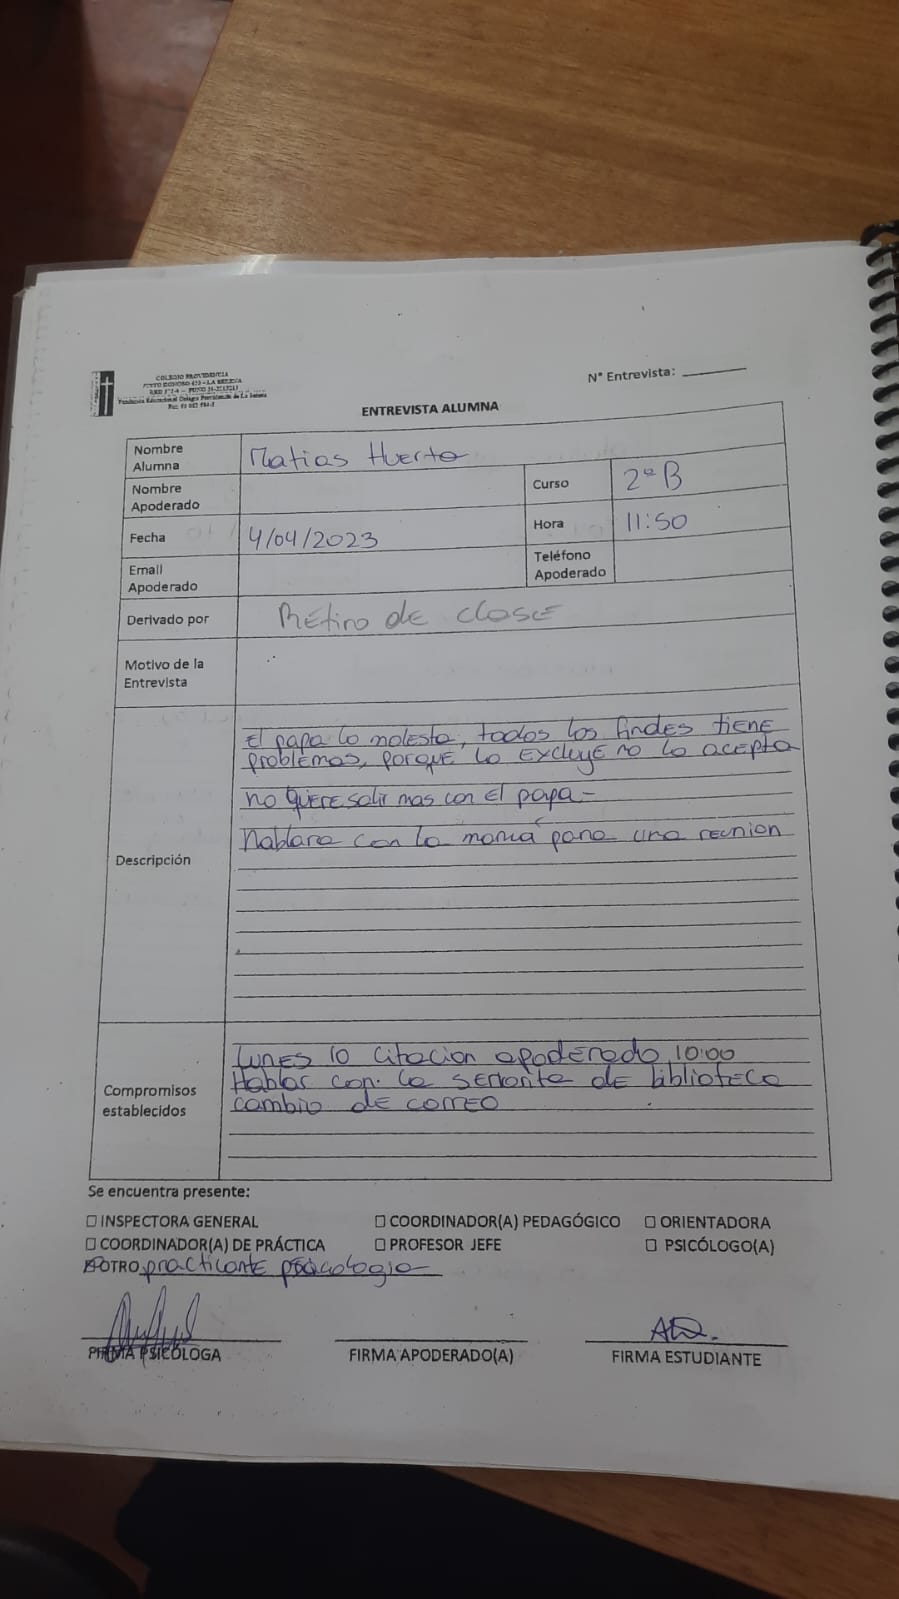 COLEGIO PROVIDENCIA
N° Entrevista:
ENTREVISTA ALUMNA
Nombre Alumna
Matias Huerta
Nombre Apoderado
Curso
2°B
Fecha
4/04/2023
Hora
11:50
Email Apoderado
Teléfono Apoderado
Derivado por
Retiro de clase
Motivo de la Entrevista
Descripción
El papa lo molesta, todos los findes tiene
problemas, porque lo excluye no lo acepta
no quiere salir mas con el papa-
Hablara con la mamá para una reunion
Compromisos establecidos
Lunes 10 citacion apoderado 10:00
Hablar con la señorita de biblioteca
cambio de correo
Se encuentra presente:
INSPECTORA GENERAL
COORDINADOR(A) PEDAGÓGICO
ORIENTADORA
COORDINADOR(A) DE PRÁCTICA
PROFESOR JEFE
PSICÓLOGO(A)
OTRO practicante psicologia
FIRMA PSICÓLOGA
FIRMA APODERADO(A)
FIRMA ESTUDIANTE